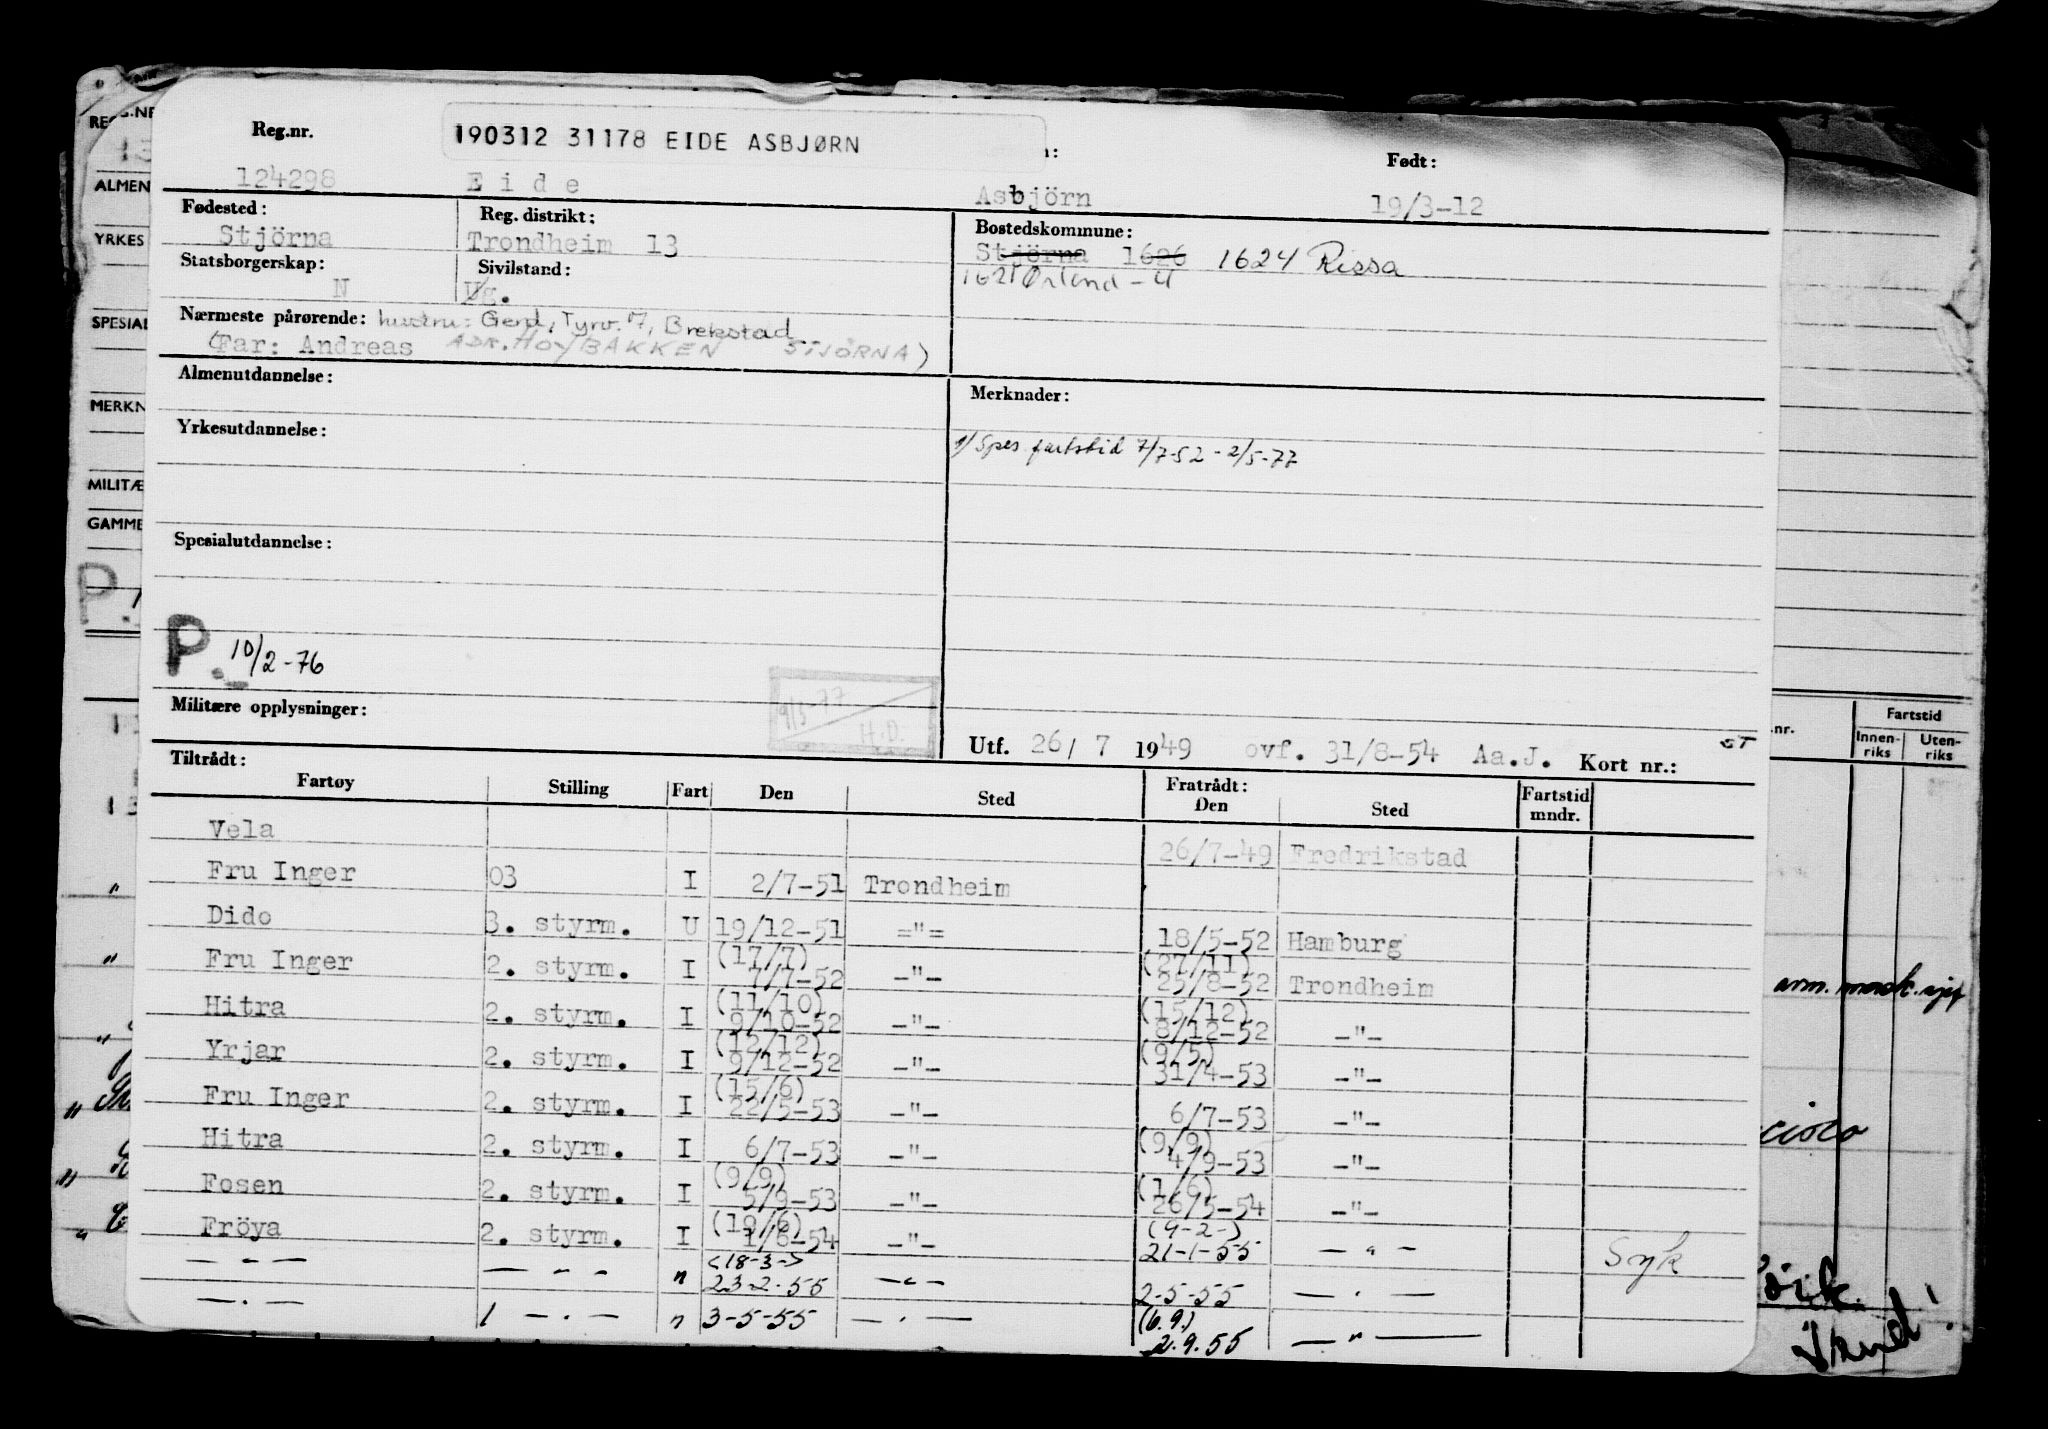 190312 31178 EIDE ASBJØRN
Reg.nr. Født:
124298 Eide Asbjörn 19/3-12
Fødested: Reg. distrikt: Bostedskommune:
Stjörna Trondheim 13 Stjörna 1626 1624 Rissa
Statsborgerskap: Sivilstand: 1621 Ørland - U
N Ug.
Nærmeste pårørende: hustru: Gerd, Tyrv. 17, Brekstad
(Far: Andreas ADR. HØYBAKKEN STJØRNA)
Almenutdannelse: Merknader:
Yrkesutdannelse: 1/ Spes. fartstid 7/7-52 - 2/5-77
Spesialutdannelse:
P. 10/2-76
9/5-77
H.D.
Militære opplysninger:
Utf. 26/7 1949 ovf. 31/8-54 Aa.J. Kort nr.:
Tiltrådt: Fratrådt:
Fartøy Stilling Fart Den Sted Den Sted Fartstid mndr.
Vela 26/7-49 Fredrikstad
Fru Inger 03 I 2/7-51 Trondheim
Dido 3. styrm. U 19/12-51 ="= 18/5-52 Hamburg
(17/7) (27/11)
Fru Inger 2. styrm. I 7/7-52 -"- 25/8-52 Trondheim
(11/10) (15/12)
Hitra 2. styrm. I 9/10-52 -"- 8/12-52 -"-
(12/12) (9/5)
Yrjar 2. styrm. I 9/12-52 -"- 31/4-53 -"-
(15/6)
Fru Inger 2. styrm. I 22/5-53 -"- 6/7-53 -"-
(9/9)
Hitra 2. styrm. I 6/7-53 -"- 4/9-53 -"-
(9/9) (1/6)
Fosen 2. styrm. I 5/9-53 -"- 26/5-54 -"-
(19/6) (9-2-)
Fröya 2. styrm. I 1/6-54 -"- 21-1-55 -"- Syk
(18-3-)
-"- -"- " 23-2-55 -"- 2-5-55 -"-
(6.9.)
-"- 1 -"- " 3-5-55 -"- 2.9.55 -"-
ALMEN
YRKES
SPESIAL
MERKN
MILITÆ
GAMME
P.
Fartstid
Innenriks Utenriks